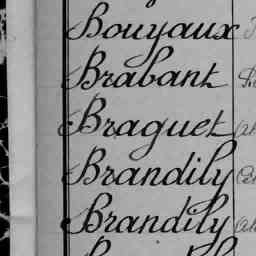 Bouyaux
Brabant
Braguet
Brandily
Brandily